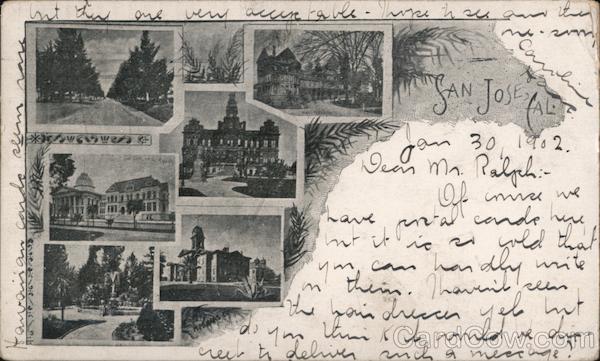 SAN JOSE, CAL.
Jan 30, 1902.
Dear Mr. Ralph:-
Of course we
have postal cards here
but it is so cold that
you can hardly write
on them. Haven't seen
the hair dresser yet but
do you think I would dare
need to deliver such a message
Hawaiian cards seem rare
but this one very acceptable - hope to see another
me - some
Caroline
CardCow.com